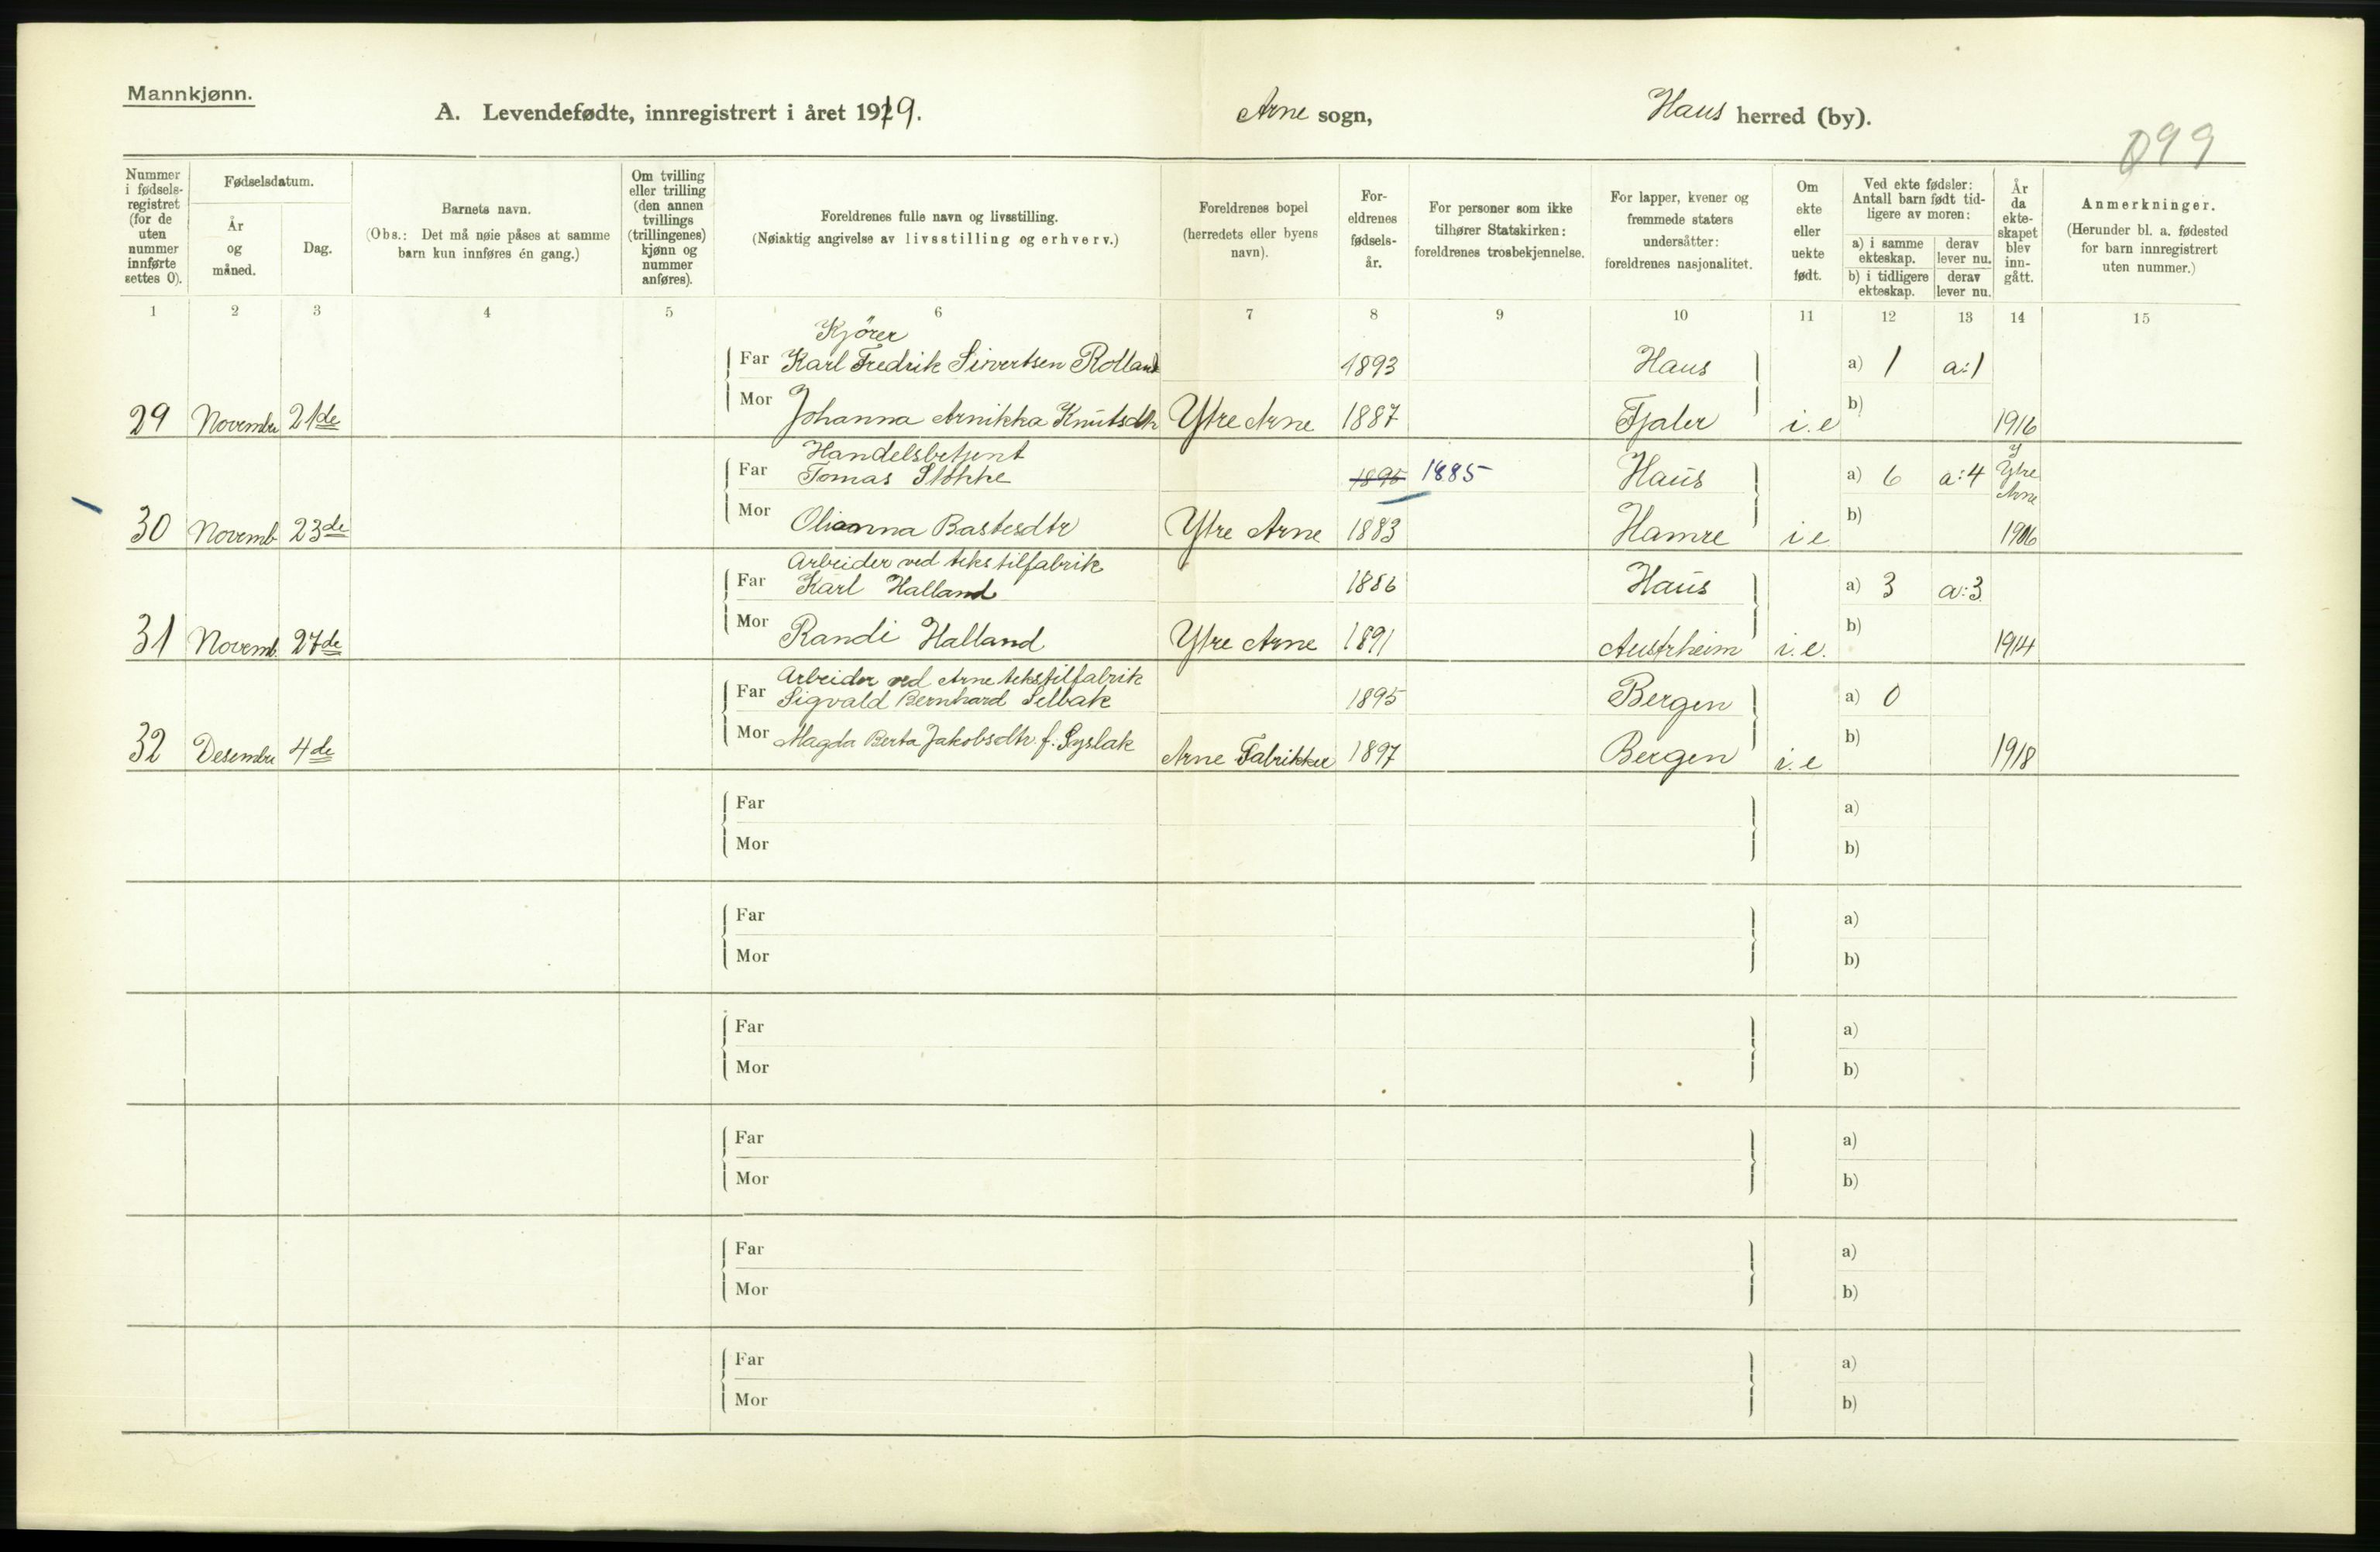 Mannkjønn.
A. Levendefødte, innregistrert i året 1919.
Arne sogn,
Haus herred (by).
099
Nummer i fødsels-registret (for de uten nummer innførte settes 0).
Fødselsdatum.
År og måned.
Dag.
Barnets navn.
(Obs.: Det må nøie påses at samme barn kun innføres én gang.)
Om tvilling eller trilling (den annen tvillings (trillingenes) kjønn og nummer anføres).
Foreldrenes fulle navn og livsstilling.
(Nøiaktig angivelse av livsstilling og erhverv.)
Foreldrenes bopel (herredets eller byens navn).
For-eldrenes fødsels-år.
For personer som ikke tilhører Statskirken: foreldrenes trosbekjennelse.
For lapper, kvener og fremmede staters undersåtter: foreldrenes nasjonalitet.
Om ekte eller uekte født.
Ved ekte fødsler: Antall barn født tid-ligere av moren:
a) i samme ekteskap.
derav lever nu.
b) i tidligere ekteskap.
derav lever nu.
År da ekte-skapet blev inn-gått.
Anmerkninger.
(Herunder bl. a. fødested for barn innregistrert uten nummer.)
1 2 3 4 5 6 7 8 9 10 11 12 13 14 15
Kjörer
Far Karl Fredrik Sivertsen Rolland 1893 Haus a) 1 a:1
29 Novembr 21de Mor Johanna Arnikka Knutsdtr Ytre Arne 1887 Fjaler i.e b) 1916
Handelsbetjent
Far Tomas Stokke 1895 1885 Haus a) 6 a:4 Y Ytre Arne
30 Novemb 23de Mor Olianna Bastesdtr Ytre Arne 1883 Hamre i e b) 1906
Arbeider ved tekstilfabrik
Far Karl Halland 1886 Haus a) 3 a:3
31 Novemb. 27de Mor Randi Halland Ytre Arne 1891 Austrheim i.e. b) 1914
Arbeider ved Arne tekstilfabrik
Far Sigvald Bernhard Selbak 1895 Bergen a) 0
32 Desembr 4de Mor Magda Berta Jakobsdtr. f. Syslak Arne Fabrikker 1897 Bergen i.e b) 1918
Far a)
Mor b)
Far a)
Mor b)
Far a)
Mor b)
Far a)
Mor b)
Far a)
Mor b)
Far a)
Mor b)